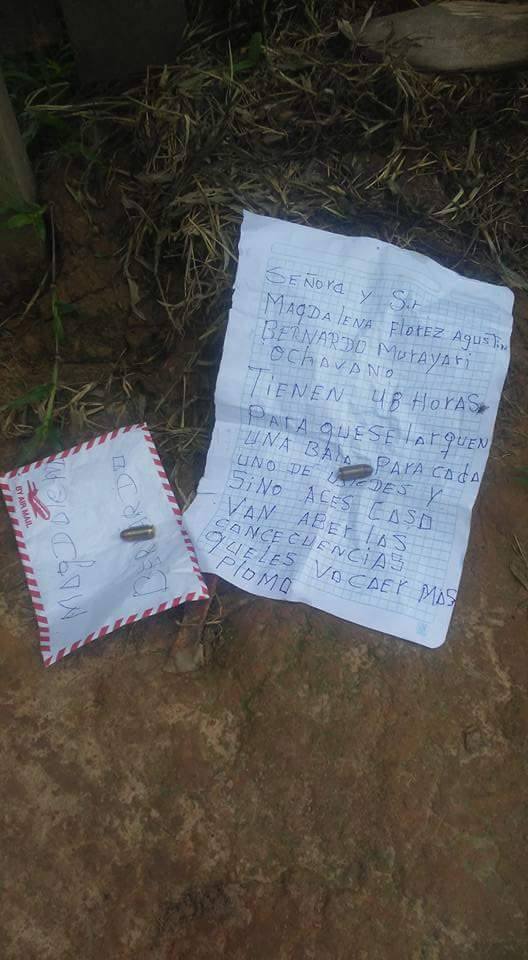 SEÑORA Y Sr
MAGDALENA Florez Agustin
BERNARDO Murayari
OCHAVANO
TIENEN 48 HORAS
PARA QUE SE LARGUEN
UNA BALA PARA CADA
UNO DE USTEDES Y
SINO ACES CASO
VAN ABER LAS
CANCECUENCIAS
QUELES VACAER MAS
PLOMO
BY AIR MAIL